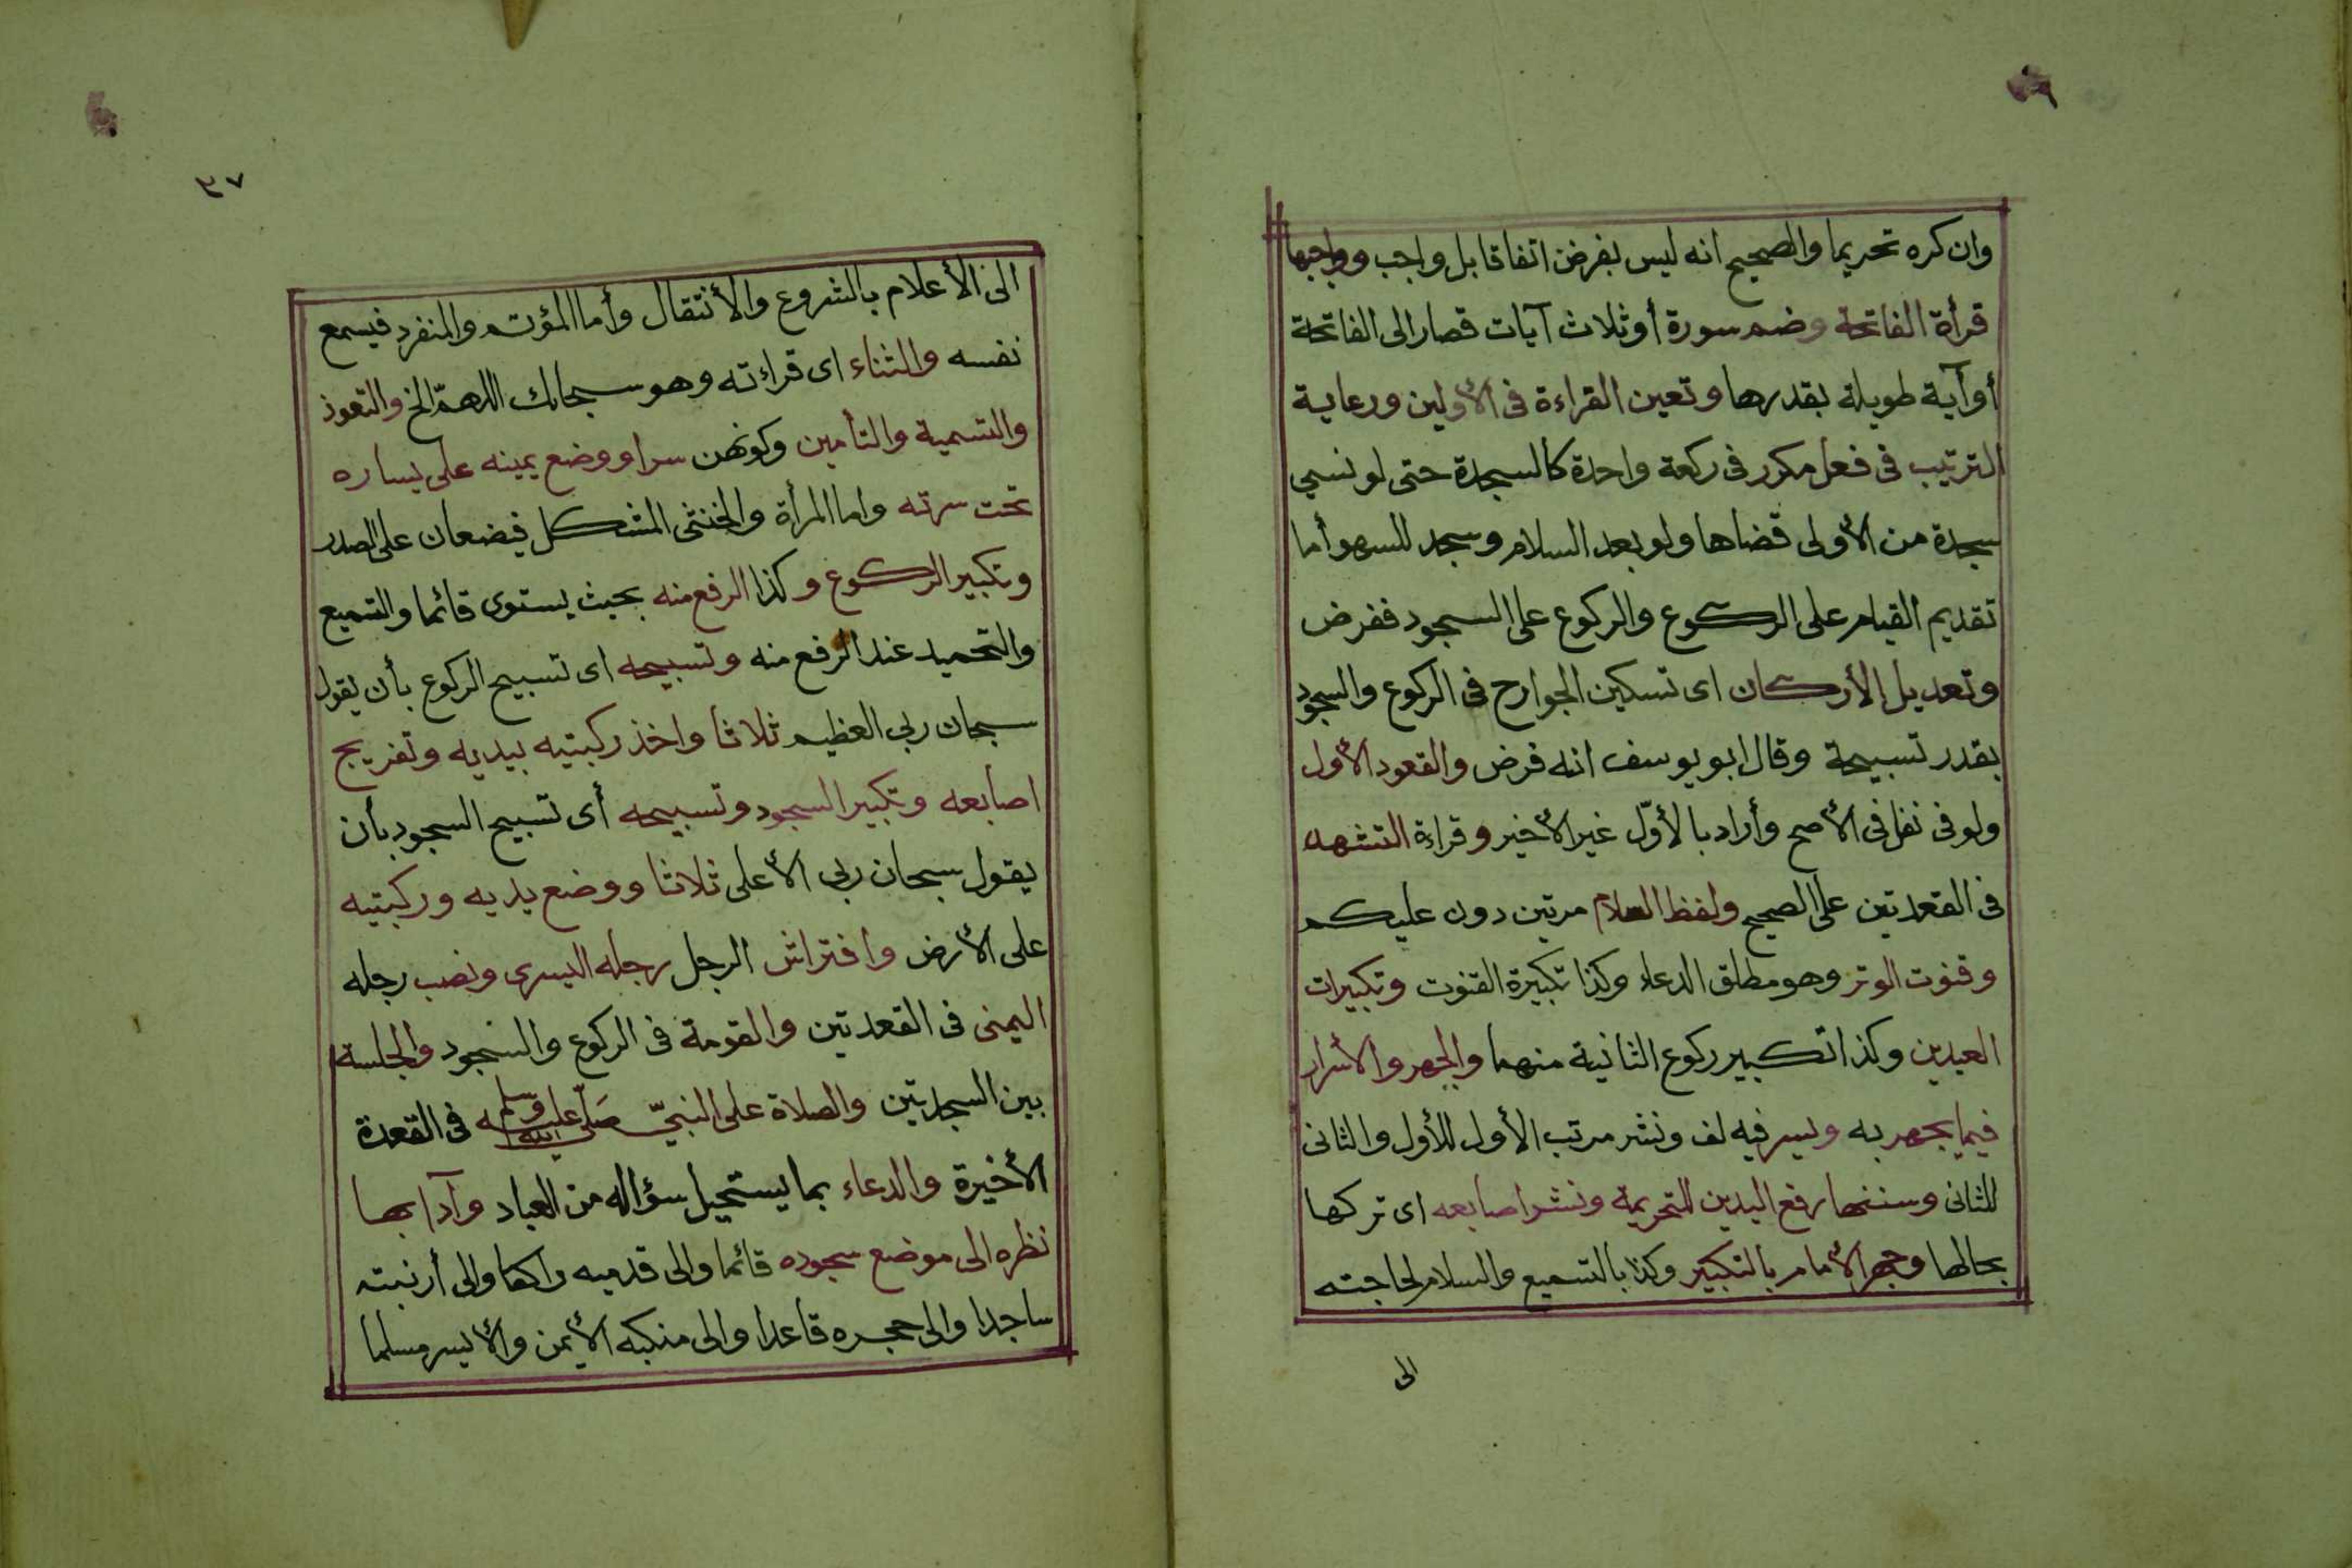 وان كره تحريما والصحيح انه ليس بفرض اتفاقا بل واجب وواجبها
قرأة الفاتحة وضم سورة أو ثلاث آيات قصار الى الفاتحة
أو آية طويلة بقدرها وتعين القراءة فى الأولين ورعاية
الترتيب فى فعل مكرر فى ركعة واحدة كالسجدة حتى لو نسي
سجدة من الأولى قضاها ولو بعد السلام وسجد للسهو أما
تقديم القيام على الركوع والركوع على السجود ففرض
وتعديل الأركان اى تسكين الجوارح فى الركوع والسجود
بقدر تسبيحة وقال ابو يوسف انه فرض والقعود الأول
ولو فى نفل فى الأصح وأراد بالأوّل غير الأخير وقراءة التشهد
فى القعدتين على الصحيح ولفظ السلام مرتين دون عليكم
وقنوت الوتر وهو مطلق الدعاء وكذا تكبيرة القنوت وتكبيرات
العيدين وكذا تكبير ركوع الثانية منهما والجهر والأسرار
فيما يجهر به ويسر فيه لف ونشر مرتب الأول للأول والثانى
للثانى وسننها رفع اليدين للتحريمة ونشر اصابعه اى تركها
بحالها وجهر الأمام بالتكبير وكذا بالتسميع والسلام لحاجته
الى
٣٧
الى الأعلام بالشروع والأنتقال وأما المؤتم والمنفرد فيسمع
نفسه والثناء اى قراءته وهو سبحانك اللهمّ الخ والتعوذ
والتسمية والتأمين وكونهن سرا ووضع يمينه على يساره
تحت سرته واما المرأة والخنثى المشكل فيضعان على الصدر
وتكبير الركوع وكذا الرفع منه بحيث يستوى قائما والتسميع
والتحميد عند الرفع منه وتسبيحه اى تسبيح الركوع بأن يقول
سبحان ربى العظيم ثلاثا واخذ ركبتيه بيديه وتفريج
اصابعه وتكبير السجود وتسبيحه أى تسبيح السجود بأن
يقول سبحان ربى الأعلى ثلاثا ووضع يديه وركبتيه
على الأرض وافتراش الرجل رجله اليسرى ونصب رجله
اليمنى فى القعدتين والقومة فى الركوع والسجود والجلسة
بين السجدتين والصلاة على النبيّ صلى الله عليه وسلم فى القعدة
الأخيرة والدعاء بما يستحيل سؤاله من العباد وآدابها
نظره الى موضع سجوده قائما والى قدميه راكعا والى أرنبته
ساجدا والى حجره قاعدا والى منكبه الأيمن والأيسر مسلما